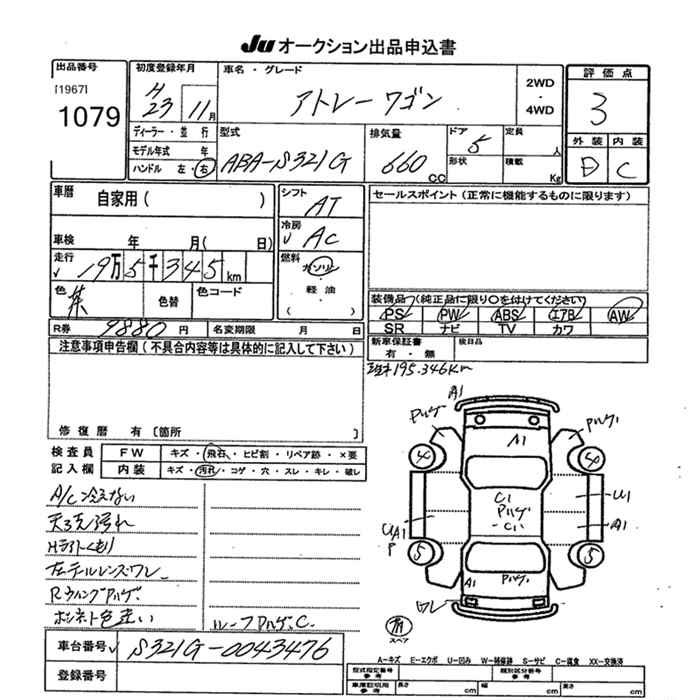 JU オークション出品申込書
出品番号
[1967]
1079
初度登録年月
H 23 11月
ディーラー・並行
モデル年式 年
ハンドル 左・右
車名・グレード
アトレーワゴン
2WD
・
4WD
評価点
3
外装 内装
D C
型式
ABA-S321G
排気量
660 CC
ドア 5
形状
定員 人
積載 Kg
車歴 自家用( )
車検 年 月( 日)
走行 19万5千345km
色 茶 色替 色コード
シフト AT
冷房 AC
燃料
ガソリン
・
軽油
( )
セールスポイント(正常に機能するものに限ります)
装備品(純正品に限り○を付けてください)
PS PW ABS エアB AW
SR ナビ TV カワ
R券 9880円 名変期限 月 日
新車保証書
有・無
検目品
注意事項申告欄(不具合内容等は具体的に記入して下さい)
195.346Km
修復歴 有〔箇所 〕
検査員
記入欄
FW キズ・飛石・ヒビ割・リペア跡・×要
内装 キズ・汚れ・コゲ・穴・スレ・キレ・破レ
A/C冷えない
天張汚れ
Hライトくもり
左テールレンズワレ
RウィングPハゲ
ボンネット色違い
ルーフPハゲ.C.
A1
Pハゲ
Pハゲ
A1
4
4
C1
Pハゲ
C1
U1
UA1
P
A1
5
5
A1
Pハゲ
ワレ
有
スペア
車台番号 S321G-0043476
登録番号
A-キズ E-エクボ U-凹み W-補修跡 S-サビ C-腐食 XX-交換済
型式指定番号
参考
類別区分番号
参考
車庫証明用
参考
長さ cm 幅 cm 高さ cm